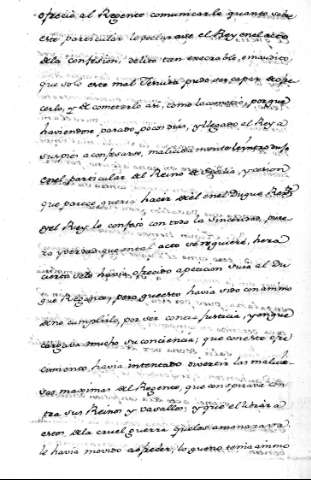 ofreció al Regente comunicarle quanto sobre
este particular le declarase el Rey en el acto
de la confesion, delito tan execrable, e inaudito
que solo este mal Jesuita pudo ser capaz de ofre
cerlo, y de cometerlo asi, como lo cometió; porque
haviendose pasado pocos dias, y llegado el Rey a
sus pies a confesarse,
en el particular del Reino de
que parece queria hacer de el en el Duque Reg.te
y el Rey le confesó con toda la sinceridad, pure
za y verdad que en tal acto se requiere, hera
cierto se lo havia ofrecido a peticion suia al Du
que Regente, pero que esto havia sido con animo
de no cumplirlo, por ser contra justicia, y porque
cargava mucho su conciencia; que con este ofre
cimiento havia intentado
maximas del Regente, que conspirava con
tra sus Reinos y vasallos; y que el librar a
estos de la cruel guerra que les amenazava
le havia movido a ofrecer, lo que no tenia animo